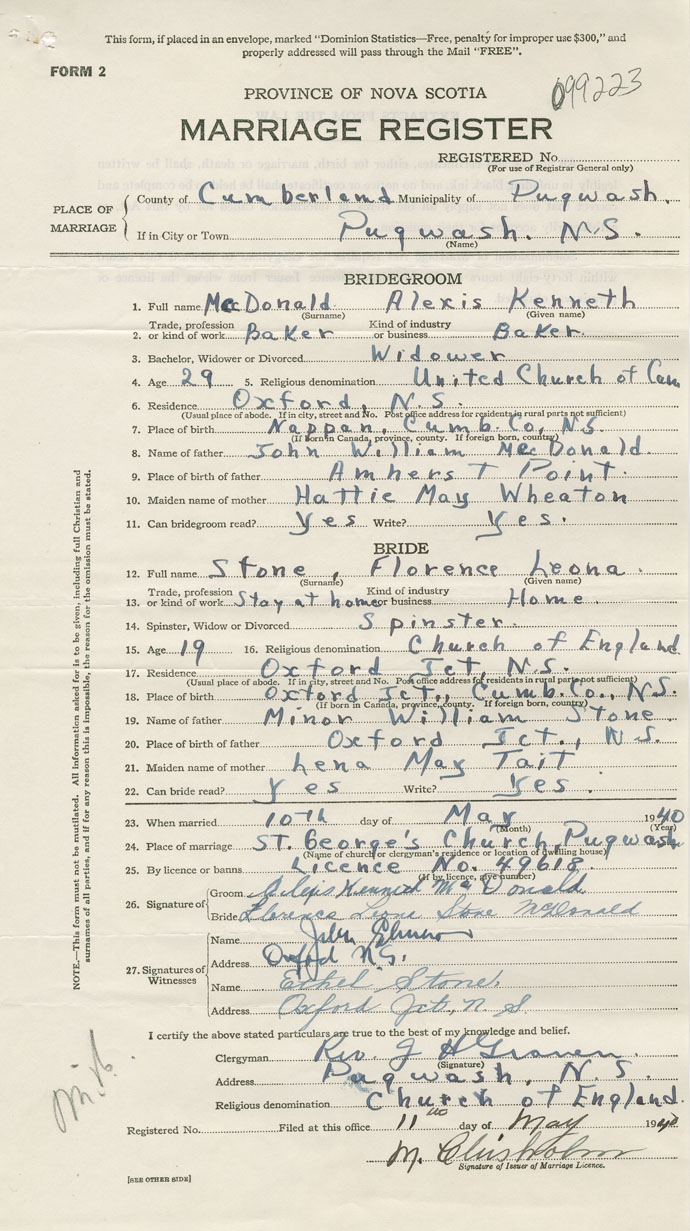 This form, if placed in an envelope, marked "Dominion Statistics—Free, penalty for improper use $300," and
properly addressed will pass through the Mail "FREE".
FORM 2
099223
PROVINCE OF NOVA SCOTIA
MARRIAGE REGISTER
REGISTERED No.
(For use of Registrar General only)
PLACE OF MARRIAGE
County of Cumberland Municipality of Pugwash.
If in City or Town Pugwash. N.S.
(Name)
BRIDEGROOM
1. Full name McDonald Alexis Kenneth
(Surname) (Given name)
2. Trade, profession or kind of work Baker Kind of industry or business Baker.
3. Bachelor, Widower or Divorced Widower
4. Age 29 5. Religious denomination United Church of Can
6. Residence Oxford, N.S.
(Usual place of abode. If in city, street and No. Post office address for residents in rural parts not sufficient)
7. Place of birth Nappan, Cumb. Co, N.S.
(If born in Canada, province, county. If foreign born, country)
8. Name of father John William McDonald.
9. Place of birth of father Amherst Point.
10. Maiden name of mother Hattie May Wheaton
11. Can bridegroom read? Yes Write? Yes.
BRIDE
12. Full name Stone, Florence Leona.
(Surname) (Given name)
13. Trade, profession or kind of work Stay at home Kind of industry or business Home.
14. Spinster, Widow or Divorced Spinster.
15. Age 19 16. Religious denomination Church of England
17. Residence Oxford Jct, N.S.
(Usual place of abode. If in city, street and No. Post office address for residents in rural parts not sufficient)
18. Place of birth Oxford Jct., Cumb. Co., N.S.
(If born in Canada, province, county. If foreign born, country)
19. Name of father Minor William Stone
20. Place of birth of father Oxford Jct., N.S.
21. Maiden name of mother Lena May Tait
22. Can bride read? Yes Write? Yes.
23. When married 10th day of May 1940
(Month) (Year)
24. Place of marriage St. George's Church, Pugwash
(Name of church or clergyman's residence or location of dwelling house)
25. By licence or banns Licence No. 49618.
(If by licence, give number)
26. Signature of
Groom Alexis Kenneth McDonald
Bride Florence Leona Stone McDonald
27. Signatures of Witnesses
Name John
Address Oxford N.S.
Name Ethel Stone.
Address Oxford Jct., N.S.
I certify the above stated particulars are true to the best of my knowledge and belief.
Clergyman Rev. J H Graven.
(Signature)
Address Pugwash, N.S.
Religious denomination Church of England.
Registered No. Filed at this office 11 day of May 1940
M. Chisholm
Signature of Issuer of Marriage Licence.
[SEE OTHER SIDE]
NOTE.—This form must not be mutilated. All information asked for is to be given, including full Christian and
surnames of all parties, and if for any reason this is impossible, the reason for the omission must be stated.